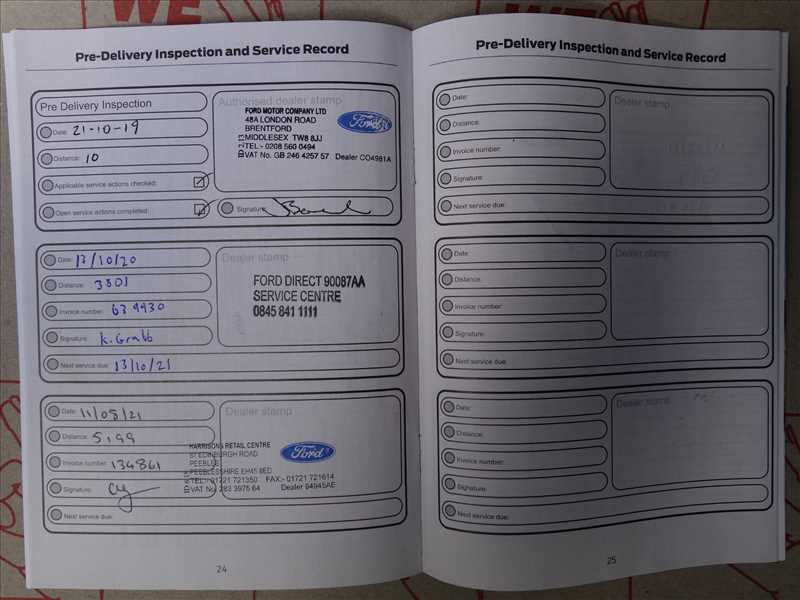 WE
WE
Pre-Delivery Inspection and Service Record
Pre Delivery Inspection
Date: 21-10-19
Distance: 10
Applicable service actions checked:
Open service actions completed:
Authorised dealer stamp
FORD MOTOR COMPANY LTD
48A LONDON ROAD
BRENTFORD
MIDDLESEX TW8 8JJ
TEL:- 0208 560 0494
VAT No. GB 246 4257 57 Dealer CO4981A
Ford
Signature:
Date: 13/10/20
Distance: 3801
Invoice number: 639930
Signature: K. Grabb
Next service due: 13/10/21
Dealer stamp
FORD DIRECT 90087AA
SERVICE CENTRE
0845 841 1111
Date: 11/08/21
Distance: 5199
Invoice number: 134861
Signature:
Next service due:
Dealer stamp
HARRISONS RETAIL CENTRE
EDINBURGH ROAD
PEEBLES
PEEBLESSHIRE EH45 8ED
TEL:- 01721 721350 FAX:- 01721 721614
VAT No. 283 3975 64 Dealer 94945AE
Ford
24
Pre-Delivery Inspection and Service Record
Date:
Distance:
Invoice number:
Signature:
Next service due:
Dealer stamp
Date:
Distance:
Invoice number:
Signature:
Next service due:
Dealer stamp
Date:
Distance:
Invoice number:
Signature:
Next service due:
Dealer stamp
25